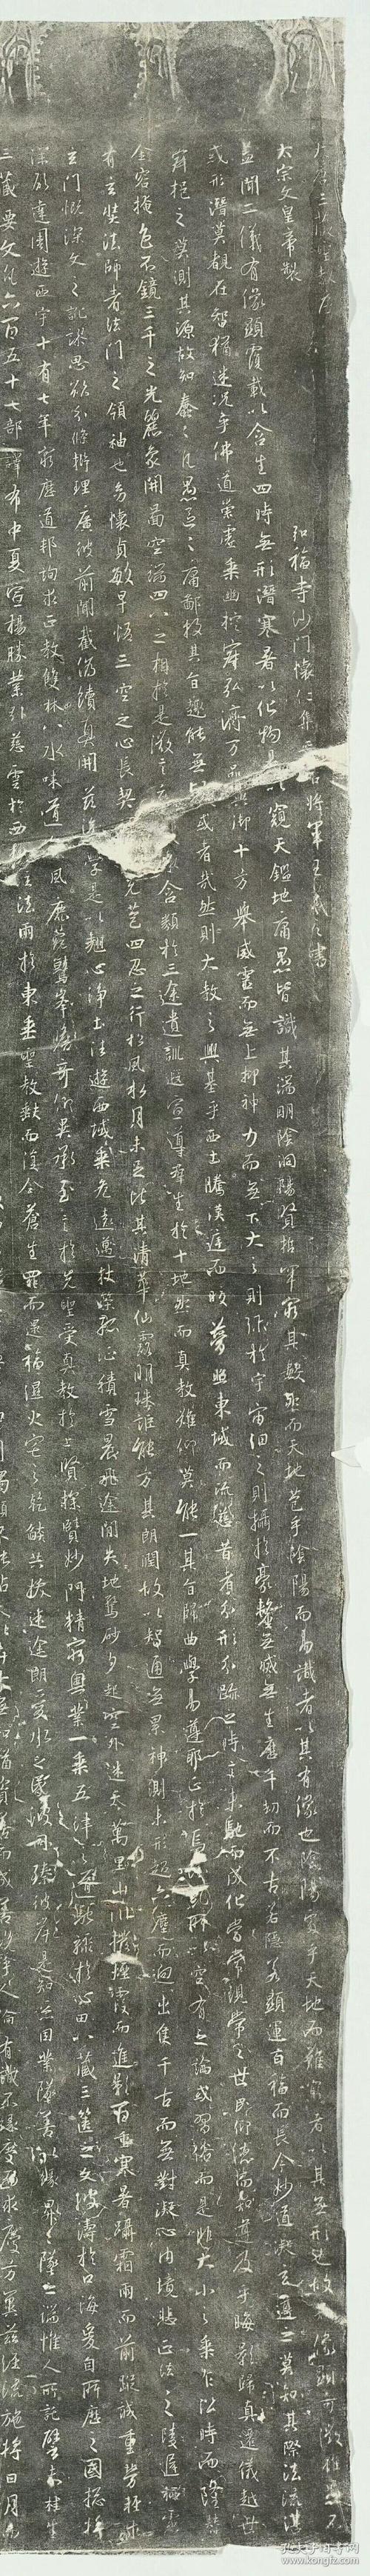 大唐三藏聖教序
太宗文皇帝製 弘福寺沙門懷仁集 右將軍王羲之書
蓋聞二儀有像顯覆載以含生四時無形潛寒暑以化物是以窺天鑑地庸愚皆識其端明陰洞陽賢哲罕窮其數然而天地苞乎陰陽而易識者以其有像也陰陽處乎天地而難窮者以其無形也故像顯可徵雖愚不
或形潛莫覩在智猶迷況乎佛道崇虛乘幽控寂弘濟万品典御十方舉威靈而無上抑神力而無下大之則弥於宇宙細之則攝於豪釐無滅無生歷千劫而不古若隱若顯運百福而長今妙道凝玄遵之莫知其際法流湛
寂挹之莫測其源故知蠢蠢凡愚區區庸鄙投其旨趣能無或者哉然則大教之興基乎西土騰漢庭而皎夢照東域而流慈昔者分形分跡之時言未馳而成化當常現常之世民仰德而知遵及乎晦影歸真遷儀越世
金容掩色不鏡三千之光麗象開圖空端四八之相於是微言含類於三途遺訓遐宣導群生於十地然而真教難仰莫能一其旨歸曲學易遵耶正於焉紛糺所以空有之論或習俗而是非大小之乘乍沿時而隆替
有玄奘法師者法門之領袖也幼懷貞敏早悟三空之心長契先苞四忍之行松風水月未足比其清華仙露明珠詎能方其朗潤故以智通無累神測未形超六塵而迥出隻千古而無對凝心內境悲正法之陵遲栖慮
玄門慨深文之訛謬思欲分條析理廣彼前聞截偽續真開茲後學是以翹心淨土法遊西域乘危遠邁杖策孤征積雪晨飛途間失地驚砂夕起空外迷天萬里山川撥煙霞而進影百重寒暑躡霜雨而前蹤誠重勞輕求
深願達周遊西宇十有七年窮歷道邦詢求正教雙林八水味道風鹿苑鷲峯瞻奇仰異承至言於先聖受真教於上賢探賾妙門精窮奧業一乘五律之道馳驟於心田八藏三篋之文波濤於口海爰自所歷之國總將
三藏要文凡六百五十七部譯布中夏宣揚勝業引慈雲於西注法雨於東垂聖教缺而復全蒼生罪而還福濕火宅之乾焰共拔迷途朗愛水之昏波同臻彼岸是知惡因業墜善以緣昇昇墜之端惟人所託譬夫桂生
人倫有識不緣慶而求慶方冀茲經流施將日月而
孔夫子旧书网
kongfz.com